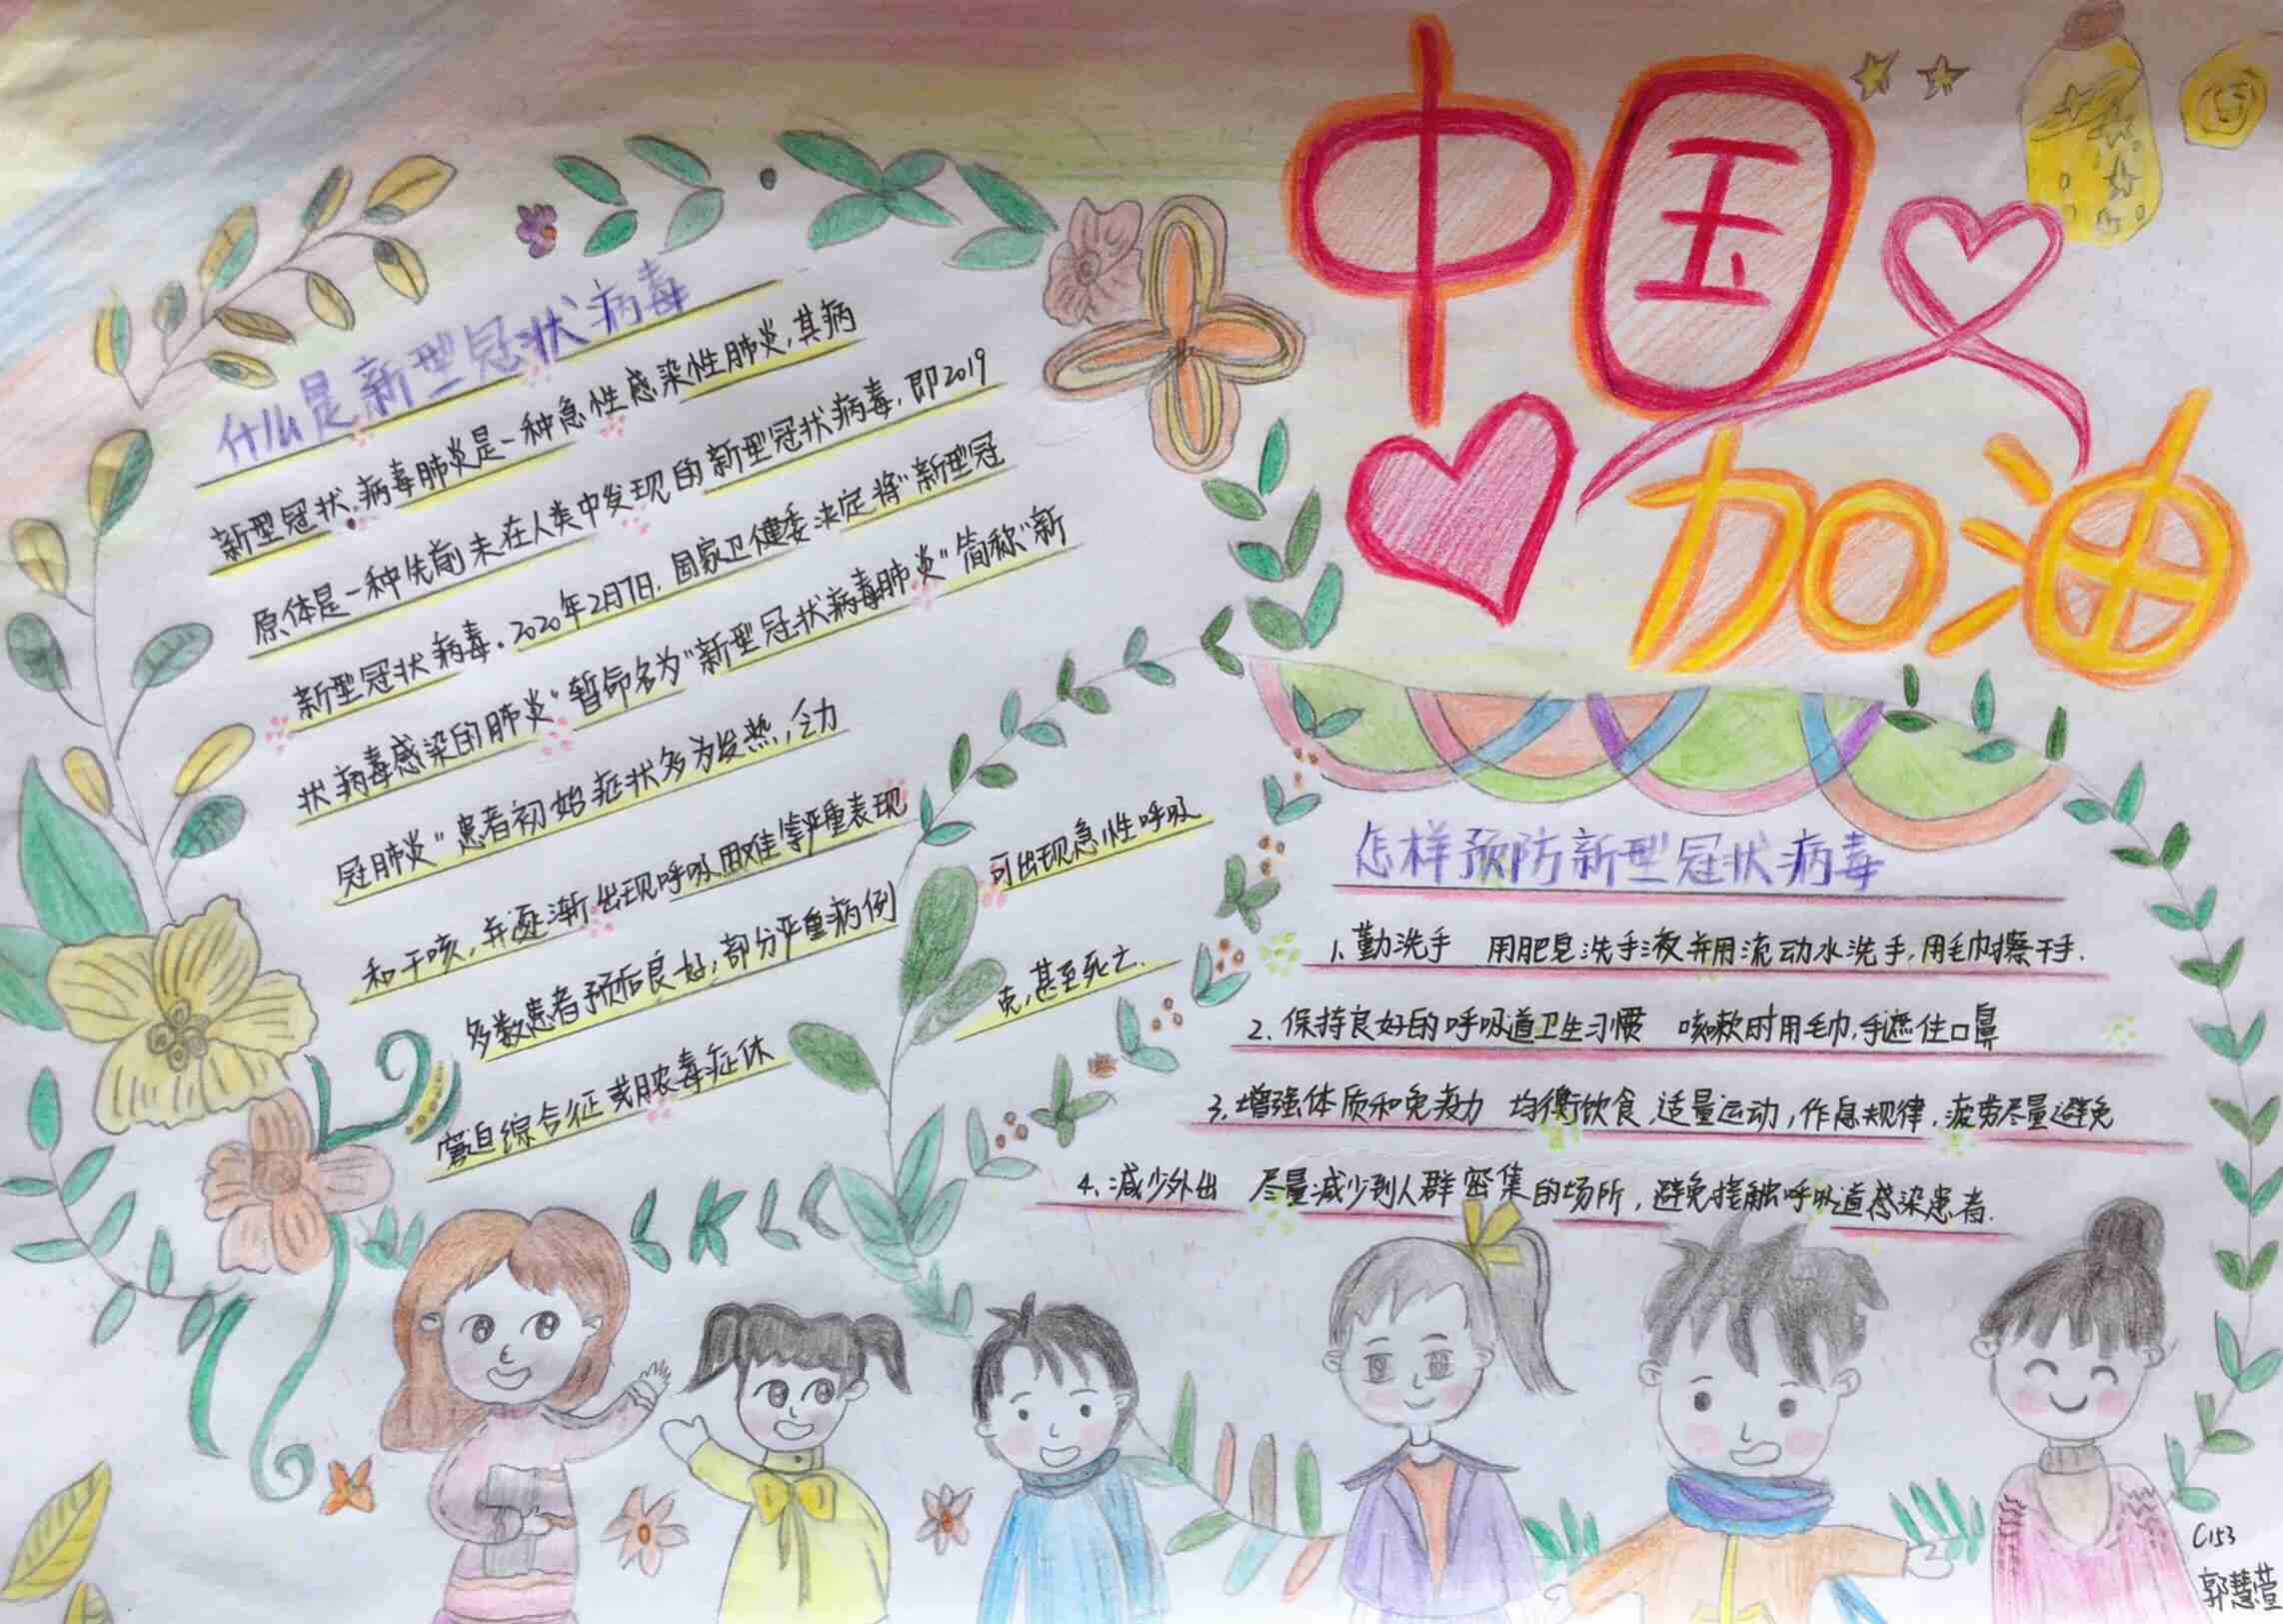 中国
加油
什么是新型冠状病毒
新型冠状病毒肺炎是一种急性感染性肺炎,其病
原体是一种先前未在人类中发现的新型冠状病毒,即2019
新型冠状病毒。2020年2月7日,国家卫健委决定将"新型冠
状病毒感染的肺炎"暂命名为"新型冠状病毒肺炎"简称"新
冠肺炎"患者初始症状多为发热,乏力
和干咳,并逐渐出现呼吸困难等严重表现
多数患者预后良好,部分严重病例
可出现急性呼吸
窘迫综合征或脓毒症休
克,甚至死亡.
怎样预防新型冠状病毒
1、勤洗手 用肥皂洗手液并用流动水洗手,用毛巾擦干手.
2、保持良好的呼吸道卫生习惯 咳嗽时用毛巾,手遮住口鼻
3、增强体质和免疫力 均衡饮食,适量运动,作息规律,疲劳尽量避免
4、减少外出 尽量减少到人群密集的场所,避免接触呼吸道感染患者.
C153
郭慧萱